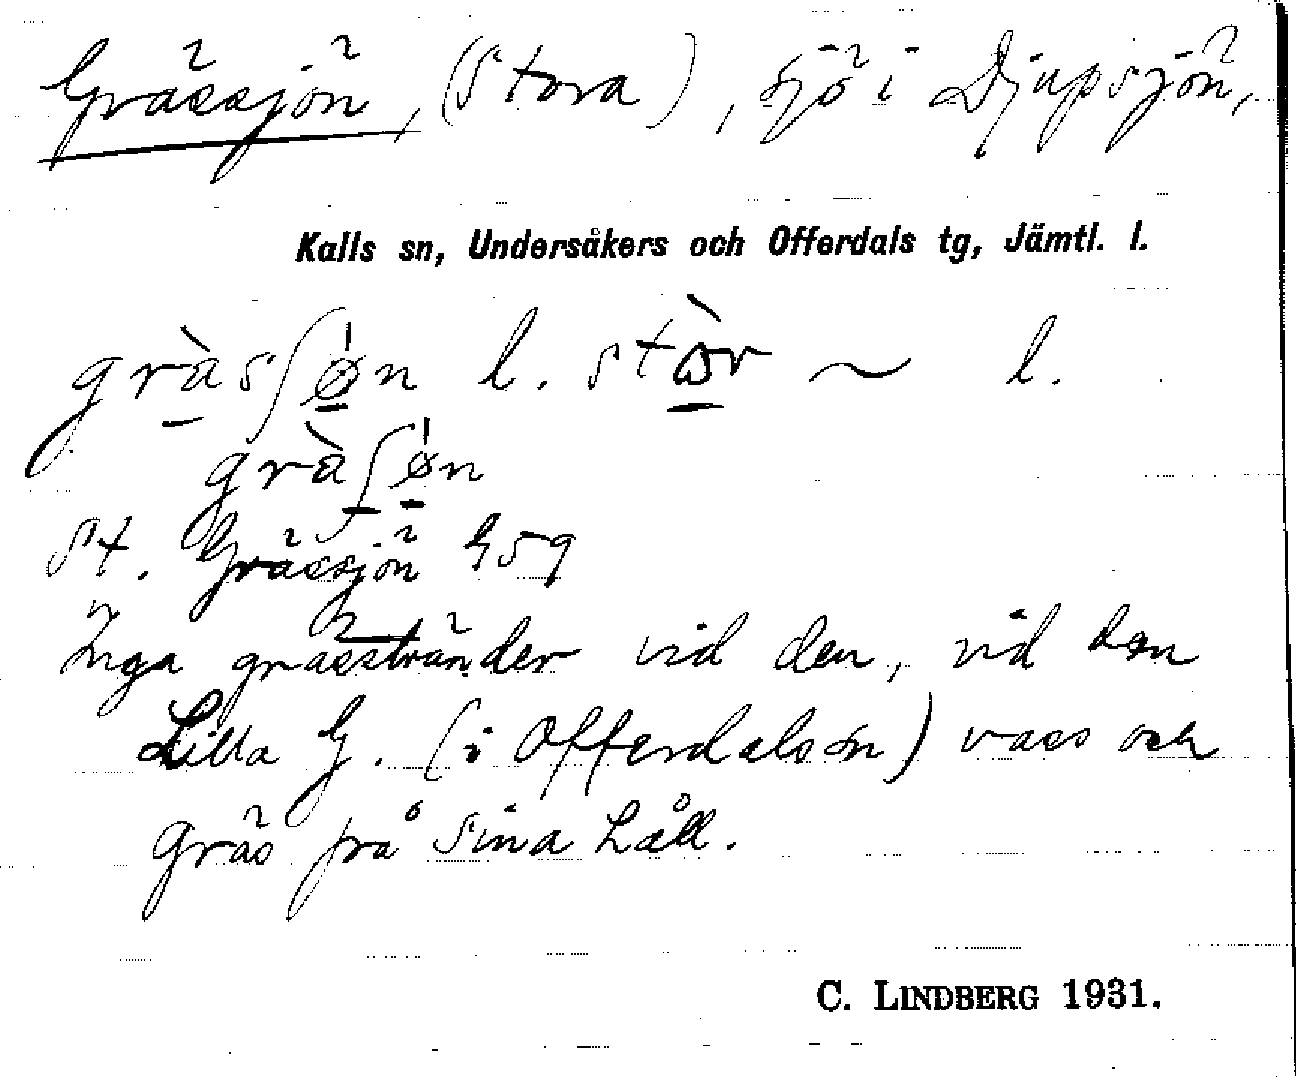 Grässjön, (Stora), sjö i Djupsjön,
Kalls sn, Undersåkers och Offerdals tg, Jämtl. l.
gràsʃøn l. stòr ~ l.
gràʃøn
St. Grässjön h59
Inga grässtränder vid den, vid den
Lilla G. (i Offerdalssn) vass och
gräs på sina håll.
C. LINDBERG 1931.